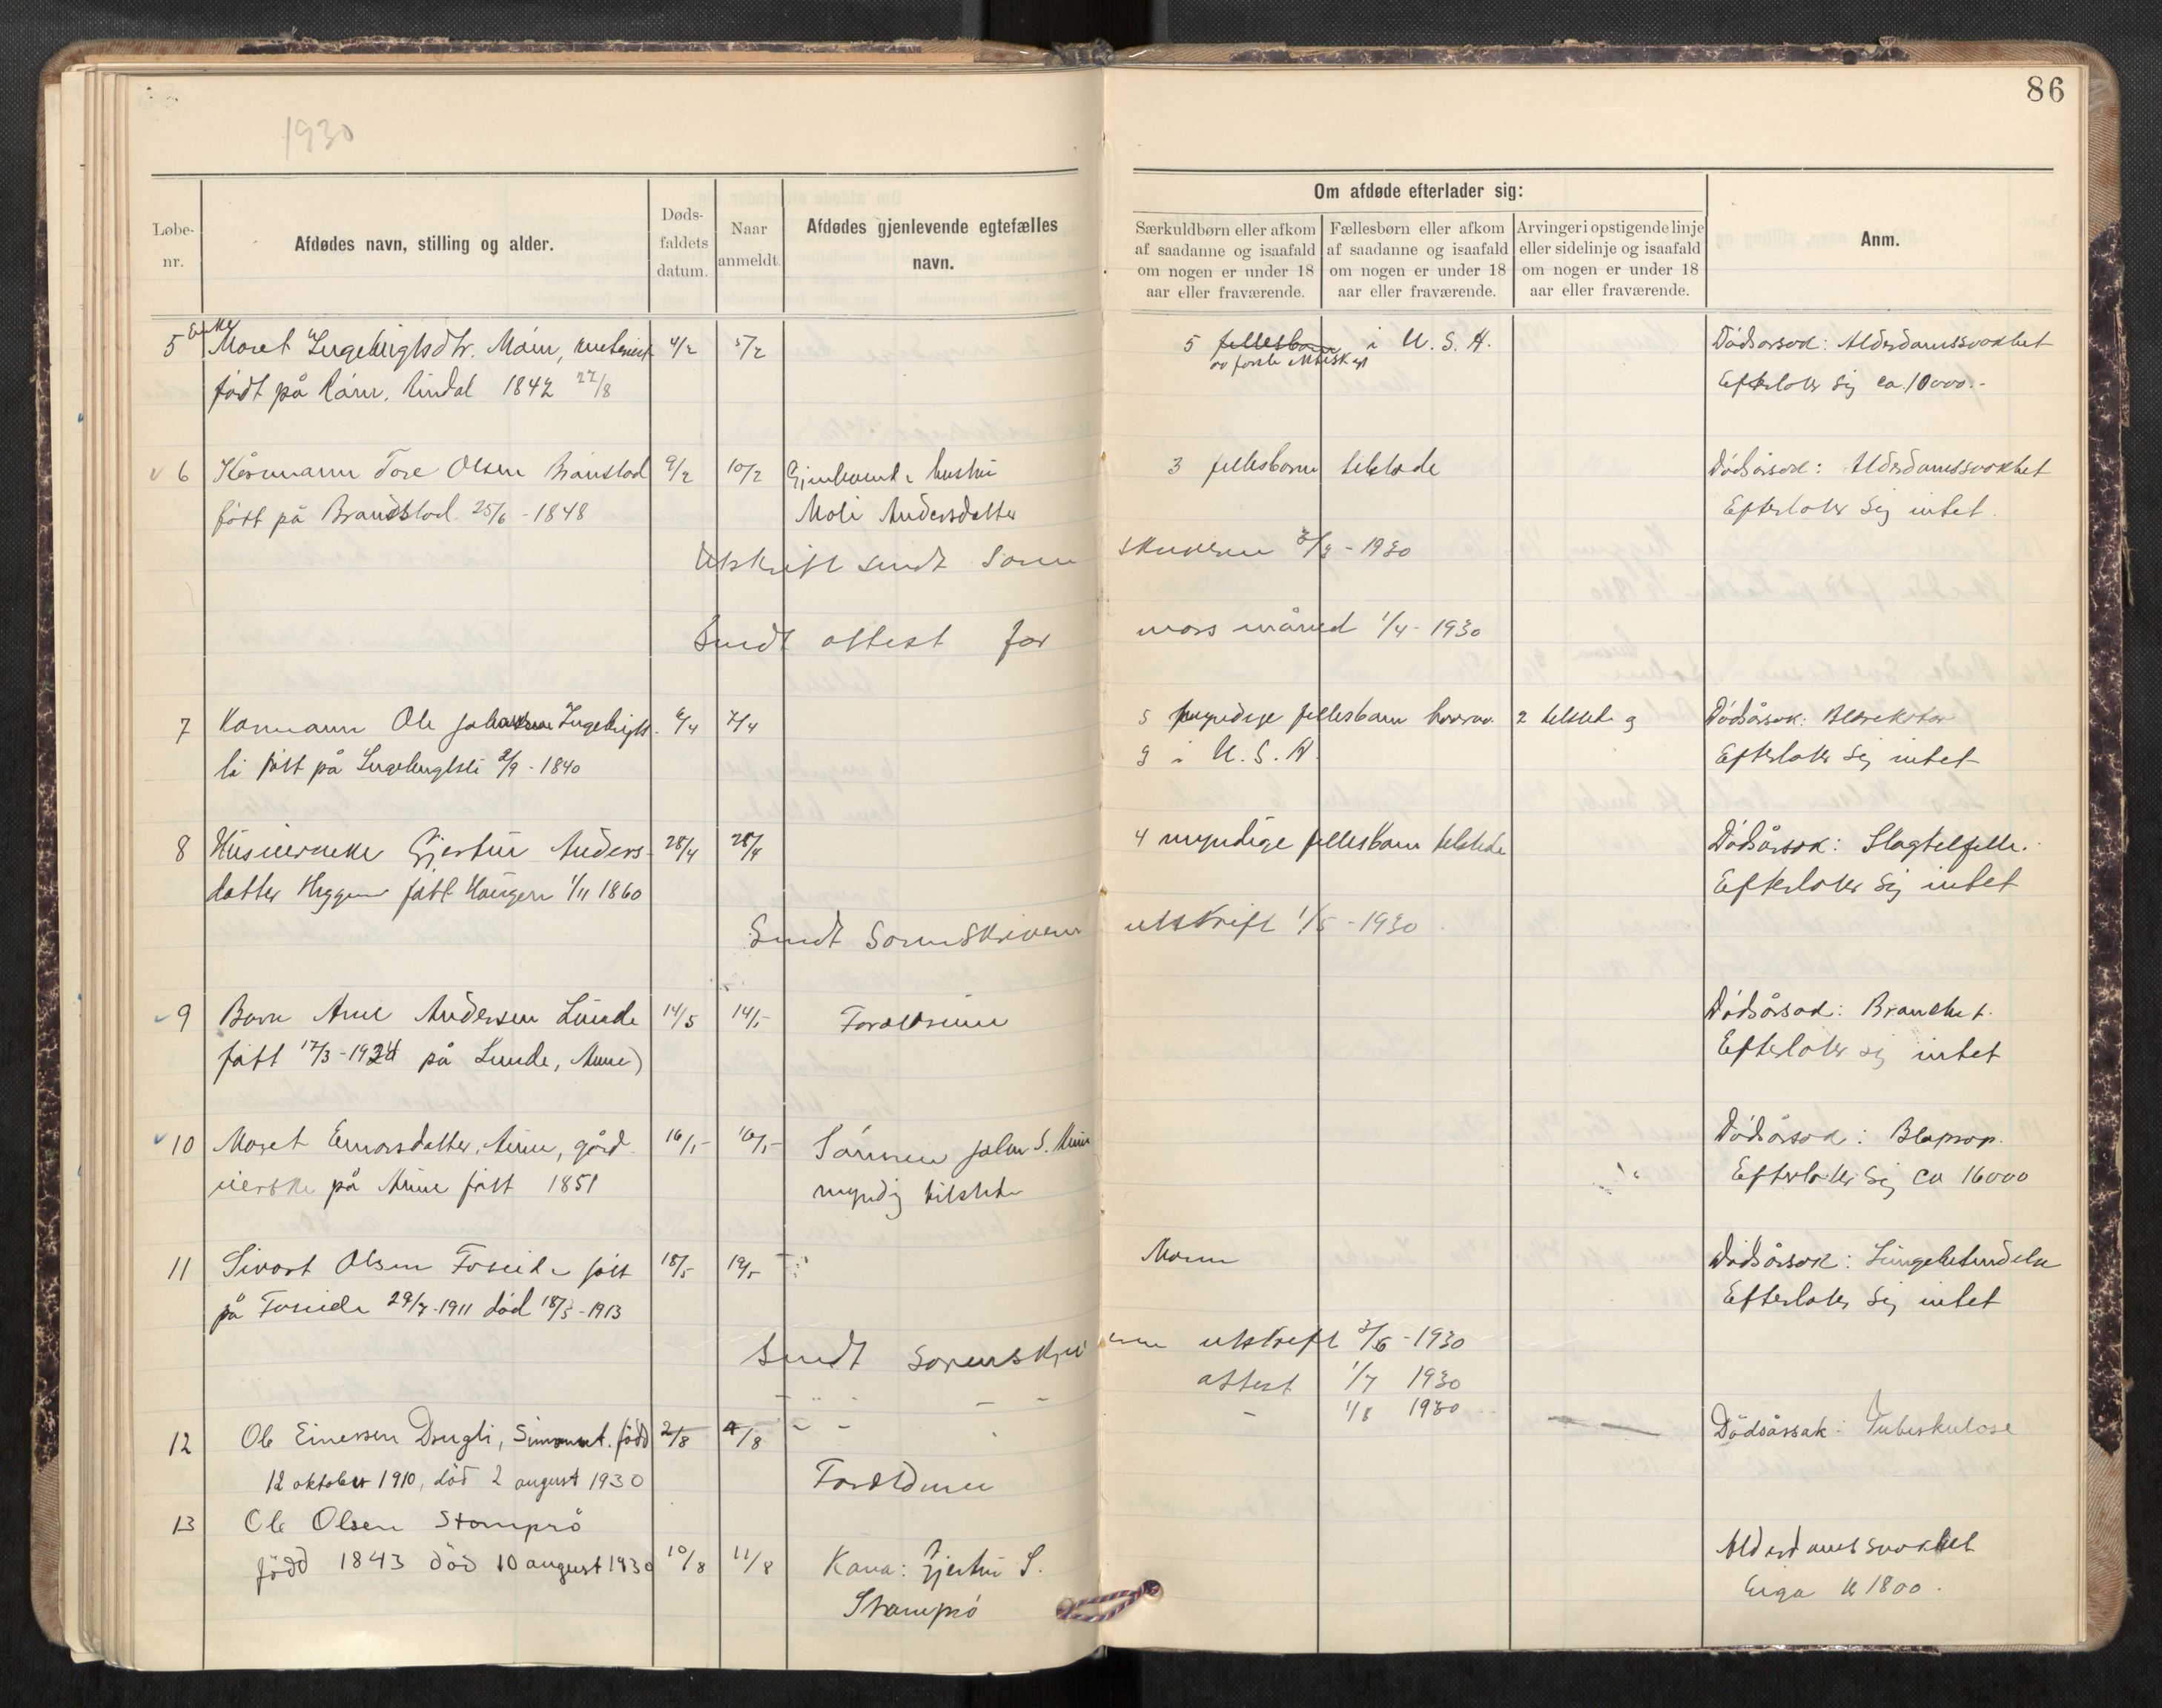 86
1930
Løbe-
nr.
Afdødes navn, stilling og alder.
Døds-
faldets
datum.
Naar
anmeldt.
Afdødes gjenlevende egtefælles
navn.
Om afdøde efterlader sig:
Særkuldbørn eller afkom
af saadanne og isaafald
om nogen er under 18
aar eller fraværende.
Fællesbørn eller afkom
af saadanne og isaafald
om nogen er under 18
aar eller fraværende.
Arvinger i opstigende linje
eller sidelinje og isaafald
om nogen er under 18
aar eller fraværende.
Anm.
Enke
5 Maret Ingebrigtsdtr. 4/2 5/2 5 fellesbarn i U. S. A. Dødsorsak: Alderdomssvakhet
født på 1842 27/8 Efterlater sig ca. 10000.-
6 Kårmann Tore Olsen Branstad 9/2 10/2 3 fellesbarn tilstede Dødsårsak: Alderdomssvakhet
født på Brandstad 25/6 - 1848 Mali Andersdatter Efterlater sig intet.
Utskrift sendt Soren skriveren 3/3 - 1930
Sendt attest for mars måned 1/4 - 1930
7 Kårmann Ole Ingebrigts- 6/4 7/4 5 myndige fellesbarn hvorav 2 tilstede og Dødsårsak:
li født på Ingebrigtsli 2/9 - 1840 3 i U. S. A. Efterlater sig intet
8 Gjertru Anders- 28/4 28/4 4 myndige fellesbarn tilstede Dødsårsak: Slagtilfelle.
datter født Haugen 1/11 1860 Efterlater sig intet
Sendt Sorenskriveren utskrift 1/5 - 1930
9 Barn Arne Andersen Lunde 14/5 14/5 Foreldrene Dødsårsak:
født 17/3 - 1924 på Lunde, Efterlater sig intet
10 Maret Einarsdatter, gård- 16/5 16/5 Sønnen John S. Dødsårsak:
på født 1851 myndig tilstede Efterlater sig ca 16000
11 Sivert Olsen Foseide født 18/5 19/5 Moren Dødsårsak: Lungebetendelse
på Foseide 29/7-1911 død 18/5-1913 Efterlater sig intet
Sendt sorenskriveren utskrift 3/6 - 1930
attest 1/7 1930
- 1/8 1930
12 Ole Einersen Drugli, født 2/8 4/8 Dødsårsak: Tuberkulose
12 oktober 1910, død 2 august 1930 Foreldrene
13 Ole Olsen Stomprø
född 1843 död 10 august 1930 10/8 11/8 Kona: Gjertru S. Alderdomssvakhet
Stomprø Eiga kr 1800.